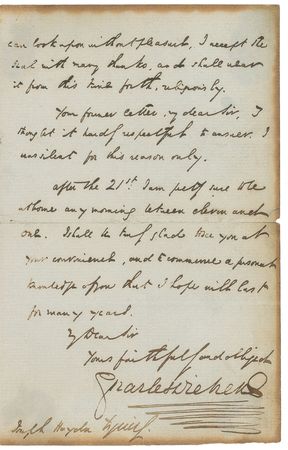 can look upon without pleasure, I accept the
seal with many thanks, and shall wear
it from this time forth, religiously.
Your former letter, my dear Sir, I
thought it hardly respectful to answer. I
was silent for this reason only.
After the 21st I am pretty sure to be
at home any morning between eleven and
one. I shall be truly glad to see you at
your convenience, and to commence a personal
knowledge of you that I hope will last
for many years.
My Dear Sir
Yours faithfully and obliged
Charles Dickens
Joseph Haydn Esquire